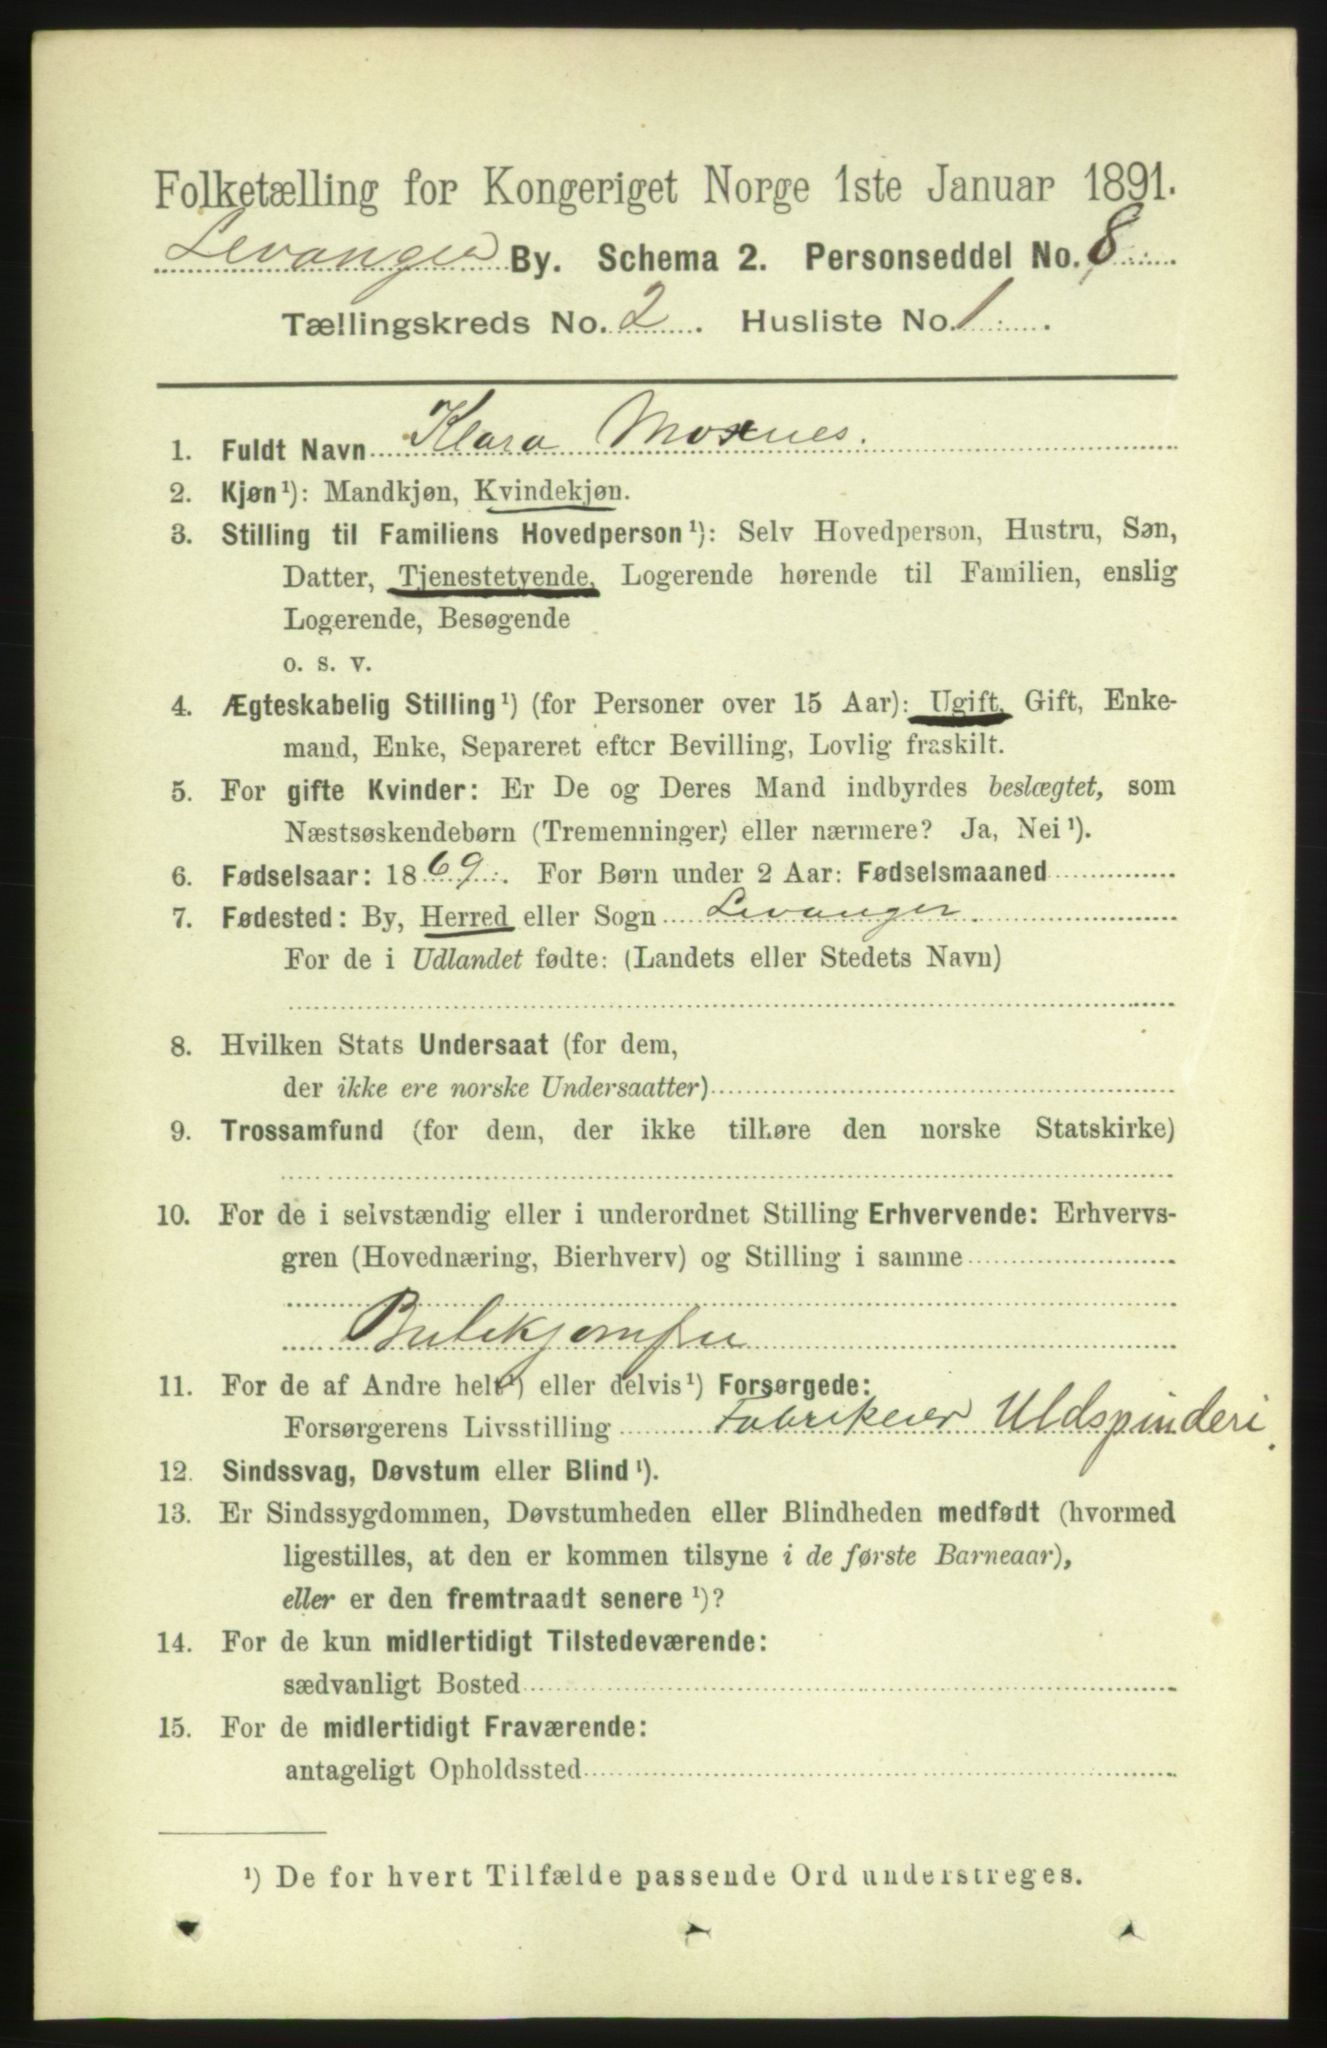 Folketælling for Kongeriget Norge 1ste Januar 1891.
Levanger By. Schema 2. Personseddel No. 8
Tællingskreds No. 2. Husliste No. 1.
1. Fuldt Navn Klara Moxnes.
2. Kjøn¹): Mandkjøn, Kvindekjøn.
3. Stilling til Familiens Hovedperson¹): Selv Hovedperson, Hustru, Søn,
Datter, Tjenestetyende, Logerende hørende til Familien, enslig
Logerende, Besøgende
o. s. v.
4. Ægteskabelig Stilling¹) (for Personer over 15 Aar): Ugift, Gift, Enke-
mand, Enke, Separeret efter Bevilling, Lovlig fraskilt.
5. For gifte Kvinder: Er De og Deres Mand indbyrdes beslægtet, som
Næstsøskendebørn (Tremenninger) eller nærmere? Ja, Nei¹).
6. Fødselsaar: 1869. For Børn under 2 Aar: Fødselsmaaned
7. Fødested: By, Herred eller Sogn Levanger.
For de i Udlandet fødte: (Landets eller Stedets Navn)
8. Hvilken Stats Undersaat (for dem,
der ikke ere norske Undersaatter)
9. Trossamfund (for dem, der ikke tilhøre den norske Statskirke)
10. For de i selvstændig eller i underordnet Stilling Erhvervende: Erhvervs-
gren (Hovednæring, Bierhverv) og Stilling i samme
Butikjomfru
11. For de af Andre helt¹) eller delvis¹) Forsørgede:
Forsørgerens Livsstilling Fabrikeier Uldspinderi.
12. Sindssvag, Døvstum eller Blind¹).
13. Er Sindssygdommen, Døvstumheden eller Blindheden medfødt (hvormed
ligestilles, at den er kommen tilsyne i de første Barneaar),
eller er den fremtraadt senere¹)?
14. For de kun midlertidigt Tilstedeværende:
sædvanligt Bosted
15. For de midlertidigt Fraværende:
antageligt Opholdssted
¹) De for hvert Tilfælde passende Ord understreges.